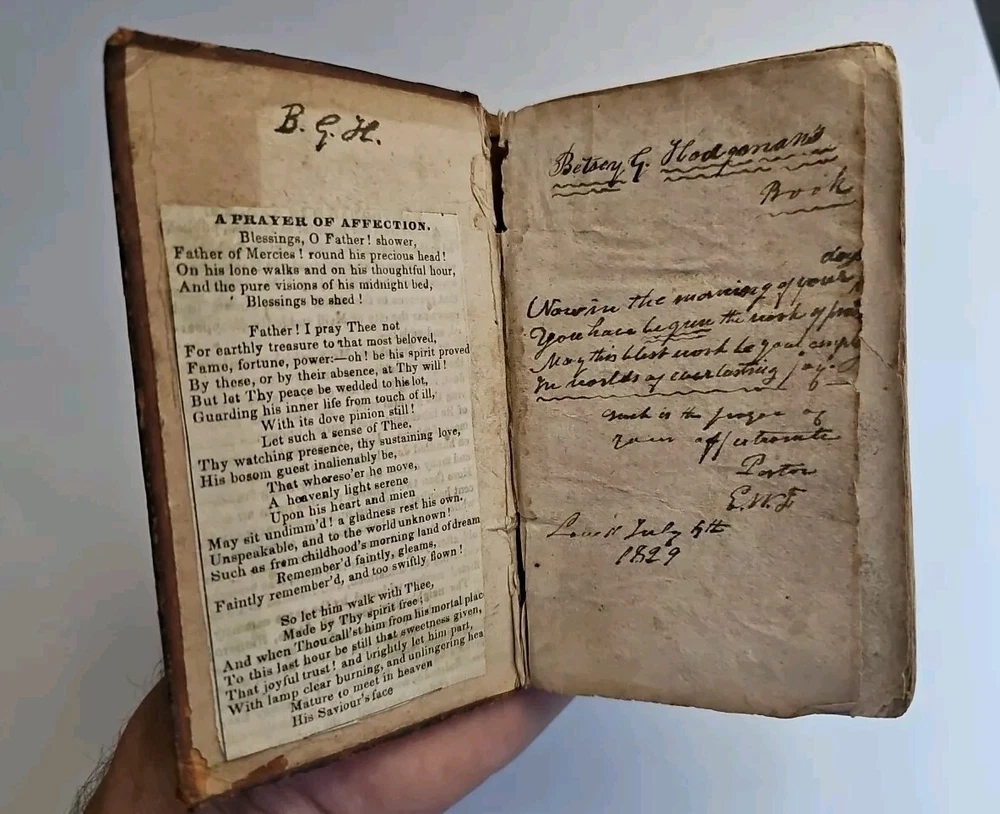 B. G. H.
A PRAYER OF AFFECTION.
Blessings, O Father! shower,
Father of Mercies! round his precious head!
On his lone walks and on his thoughtful hour,
And the pure visions of his midnight bed,
Blessings be shed!
Father! I pray Thee not
For earthly treasure to that most beloved,
Fame, fortune, power:—oh! be his spirit proved
By these, or by their absence, at Thy will!
But let Thy peace be wedded to his lot,
Guarding his inner life from touch of ill,
With its dove pinion still!
Let such a sense of Thee,
Thy watching presence, thy sustaining love,
His bosom guest inalienably be,
That wheresoe'er he move,
A heavenly light serene
Upon his heart and mien
May sit undimm'd! a gladness rest his own,
Unspeakable, and to the world unknown!
Such as from childhood's morning land of dream
Remember'd faintly, gleams,
Faintly remember'd, and too swiftly flown!
So let him walk with Thee,
Made by Thy spirit free;
And when Thou call'st him from his mortal plac
To this last hour be still that sweetness given,
That joyful trust! and brightly let him part,
With lamp clear burning, and unlingering hea
Mature to meet in heaven
His Saviour's face
Betsey G. Hodgman's
Book
days
Now in the morning of your
You have begun the work of
May this blest work be your
In worlds of everlasting joy.
Such is the prayer of
your affectionate
E.W.F
July 4th
1829